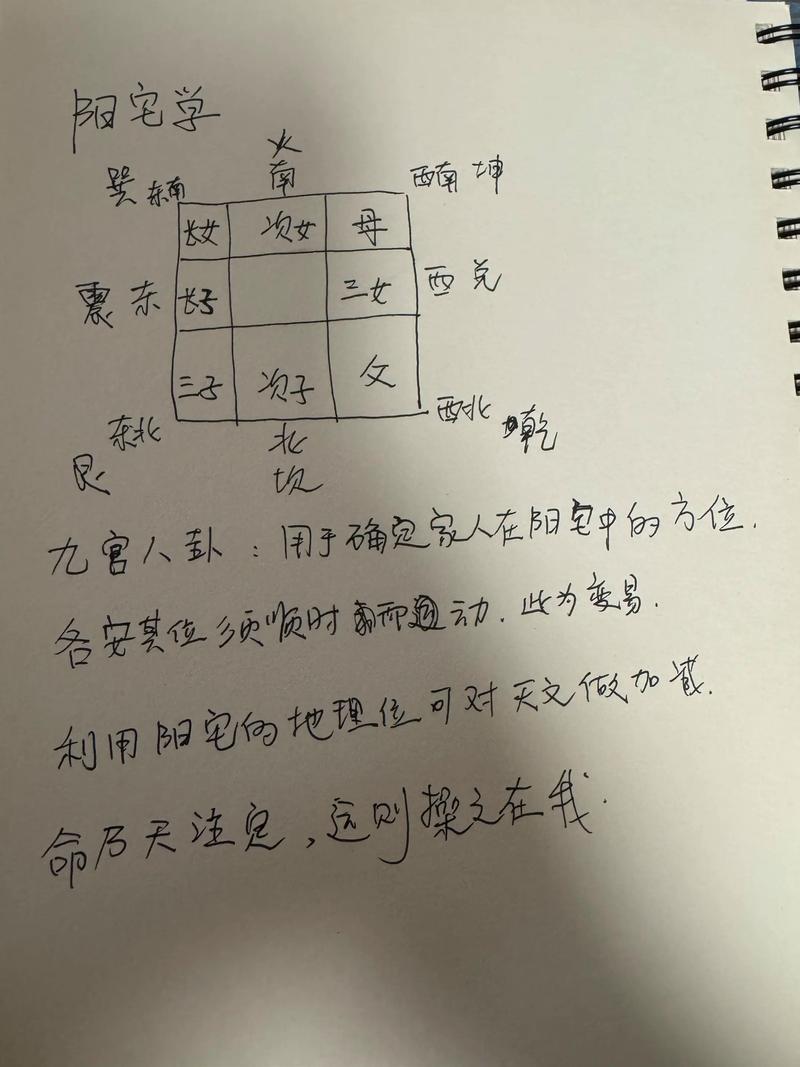 阳宅学
火
巽 东南 南 西南 坤
长女 次女 母
震 东 长子 三女 西 兑
三子 次子 父
东北 北 西北 乾
艮 坎
九宫八卦：用于确定家人在阳宅中的方位.
各安其位须顺时而动.此为变易.
利用阳宅的地理位可对天文做加减.
命乃天注定，运则操之在我.